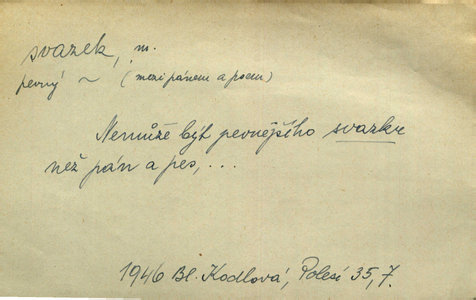 svazek, m.
pevný ~ (mezi pánem a psem)
Nemůže být pevnějšího svazku
než pán a pes, ...
1946 Bl. Kodlová, Polesí 35,7.